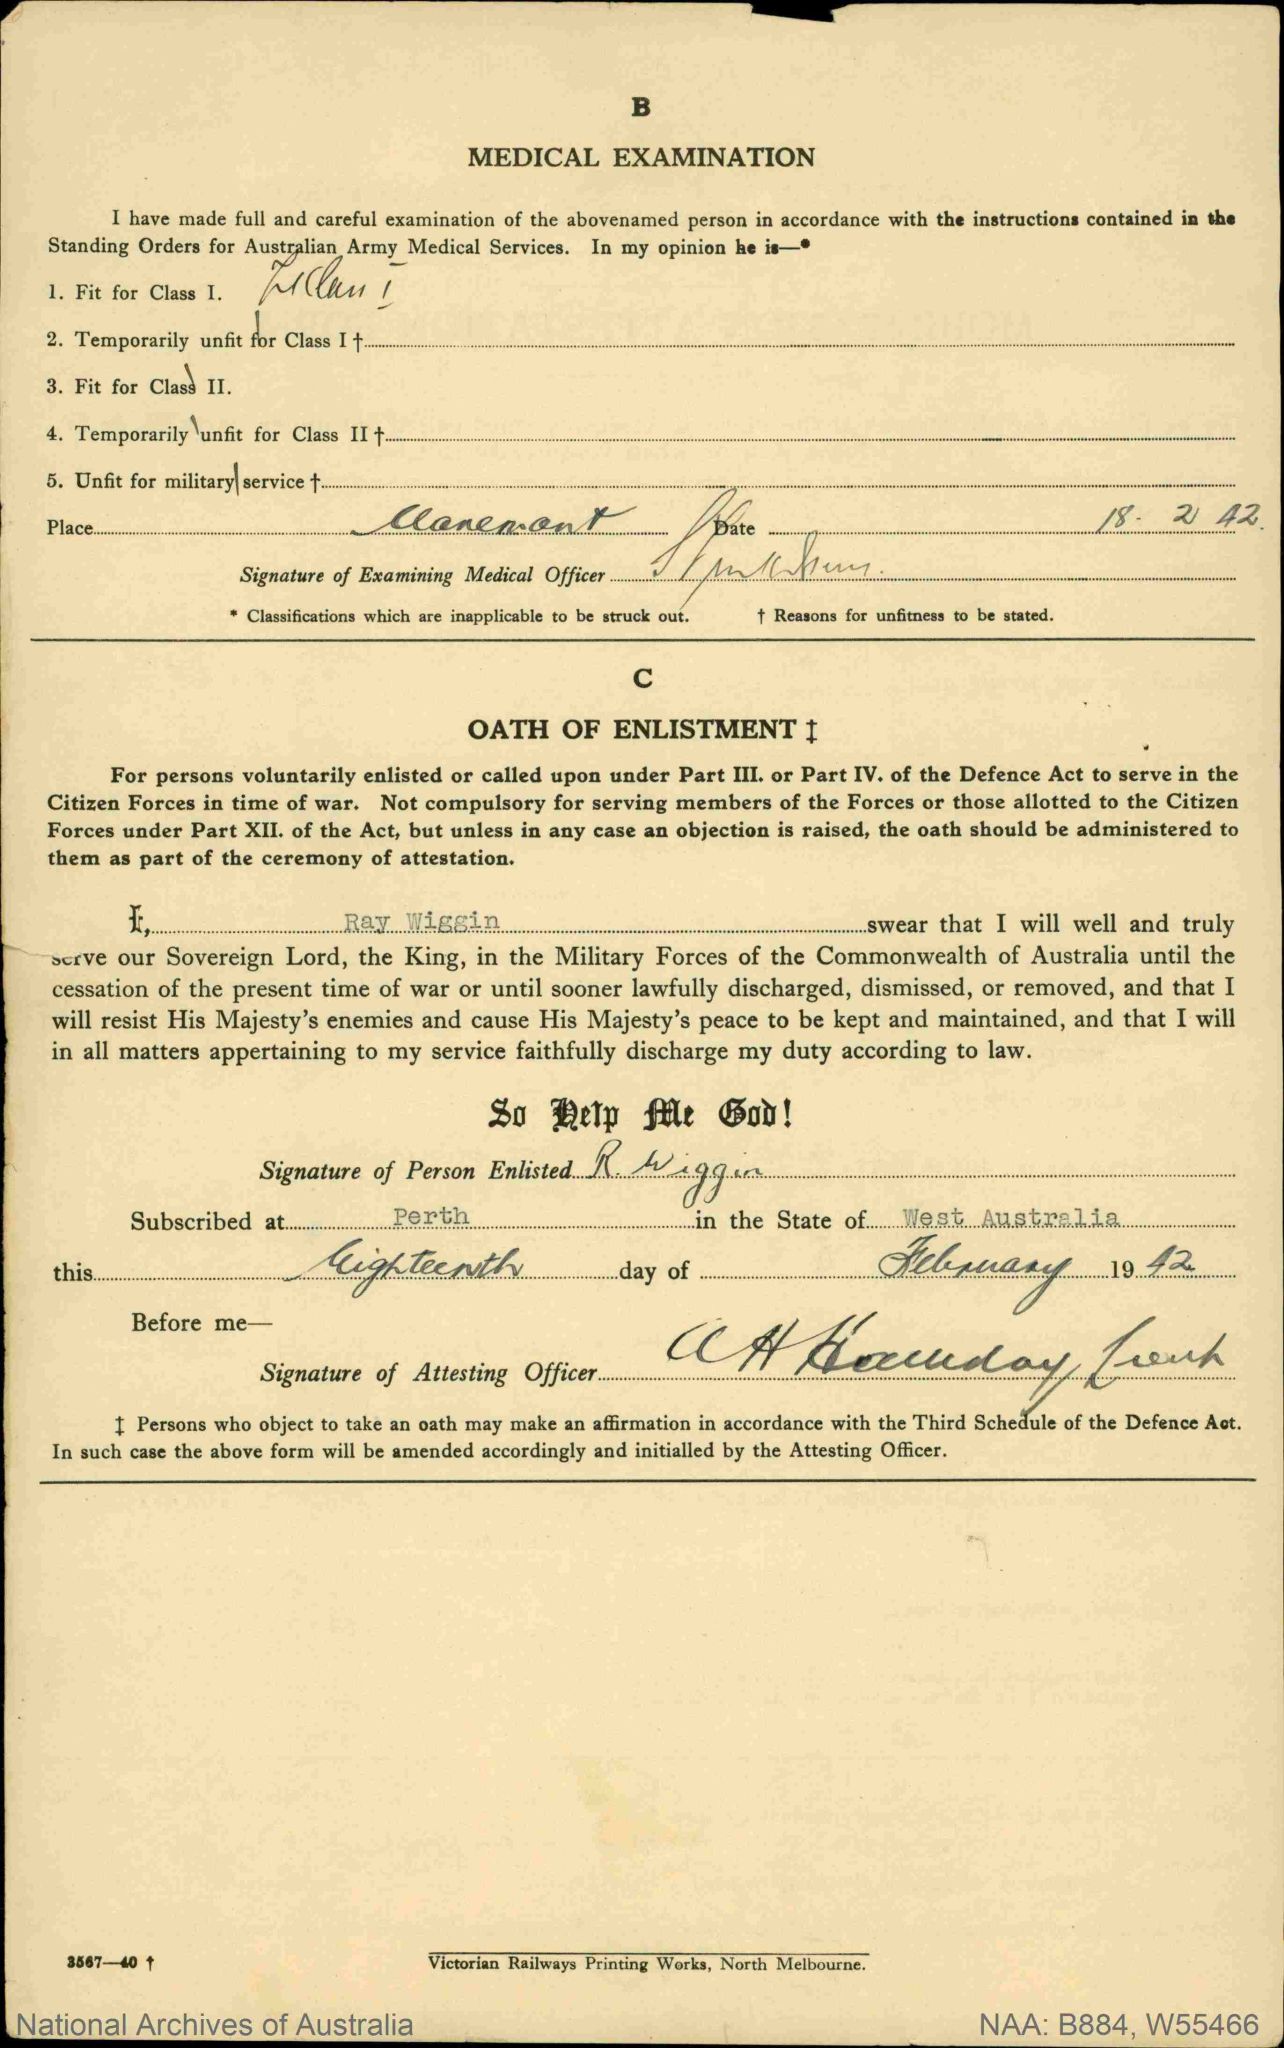 B
MEDICAL EXAMINATION
I have made full and careful examination of the abovenamed person in accordance with the instructions contained in the
Standing Orders for Australian Army Medical Services. In my opinion he is—*
1. Fit for Class I. Class I
2. Temporarily unfit for Class I †
3. Fit for Class II.
4. Temporarily unfit for Class II †
5. Unfit for military service †
Place Claremont Date 18. 2 42.
Signature of Examining Medical Officer
* Classifications which are inapplicable to be struck out. † Reasons for unfitness to be stated.
C
OATH OF ENLISTMENT ‡
For persons voluntarily enlisted or called upon under Part III. or Part IV. of the Defence Act to serve in the
Citizen Forces in time of war. Not compulsory for serving members of the Forces or those allotted to the Citizen
Forces under Part XII. of the Act, but unless in any case an objection is raised, the oath should be administered to
them as part of the ceremony of attestation.
I, Ray Wiggin swear that I will well and truly
serve our Sovereign Lord, the King, in the Military Forces of the Commonwealth of Australia until the
cessation of the present time of war or until sooner lawfully discharged, dismissed, or removed, and that I
will resist His Majesty's enemies and cause His Majesty's peace to be kept and maintained, and that I will
in all matters appertaining to my service faithfully discharge my duty according to law.
So Help Me God!
Signature of Person Enlisted R. Wiggin
Subscribed at Perth in the State of West Australia
this Eighteenth day of February 19 42
Before me—
Signature of Attesting Officer A H
‡ Persons who object to take an oath may make an affirmation in accordance with the Third Schedule of the Defence Act.
In such case the above form will be amended accordingly and initialled by the Attesting Officer.
3567—40 †
Victorian Railways Printing Works, North Melbourne.
National Archives of Australia
NAA: B884, W55466